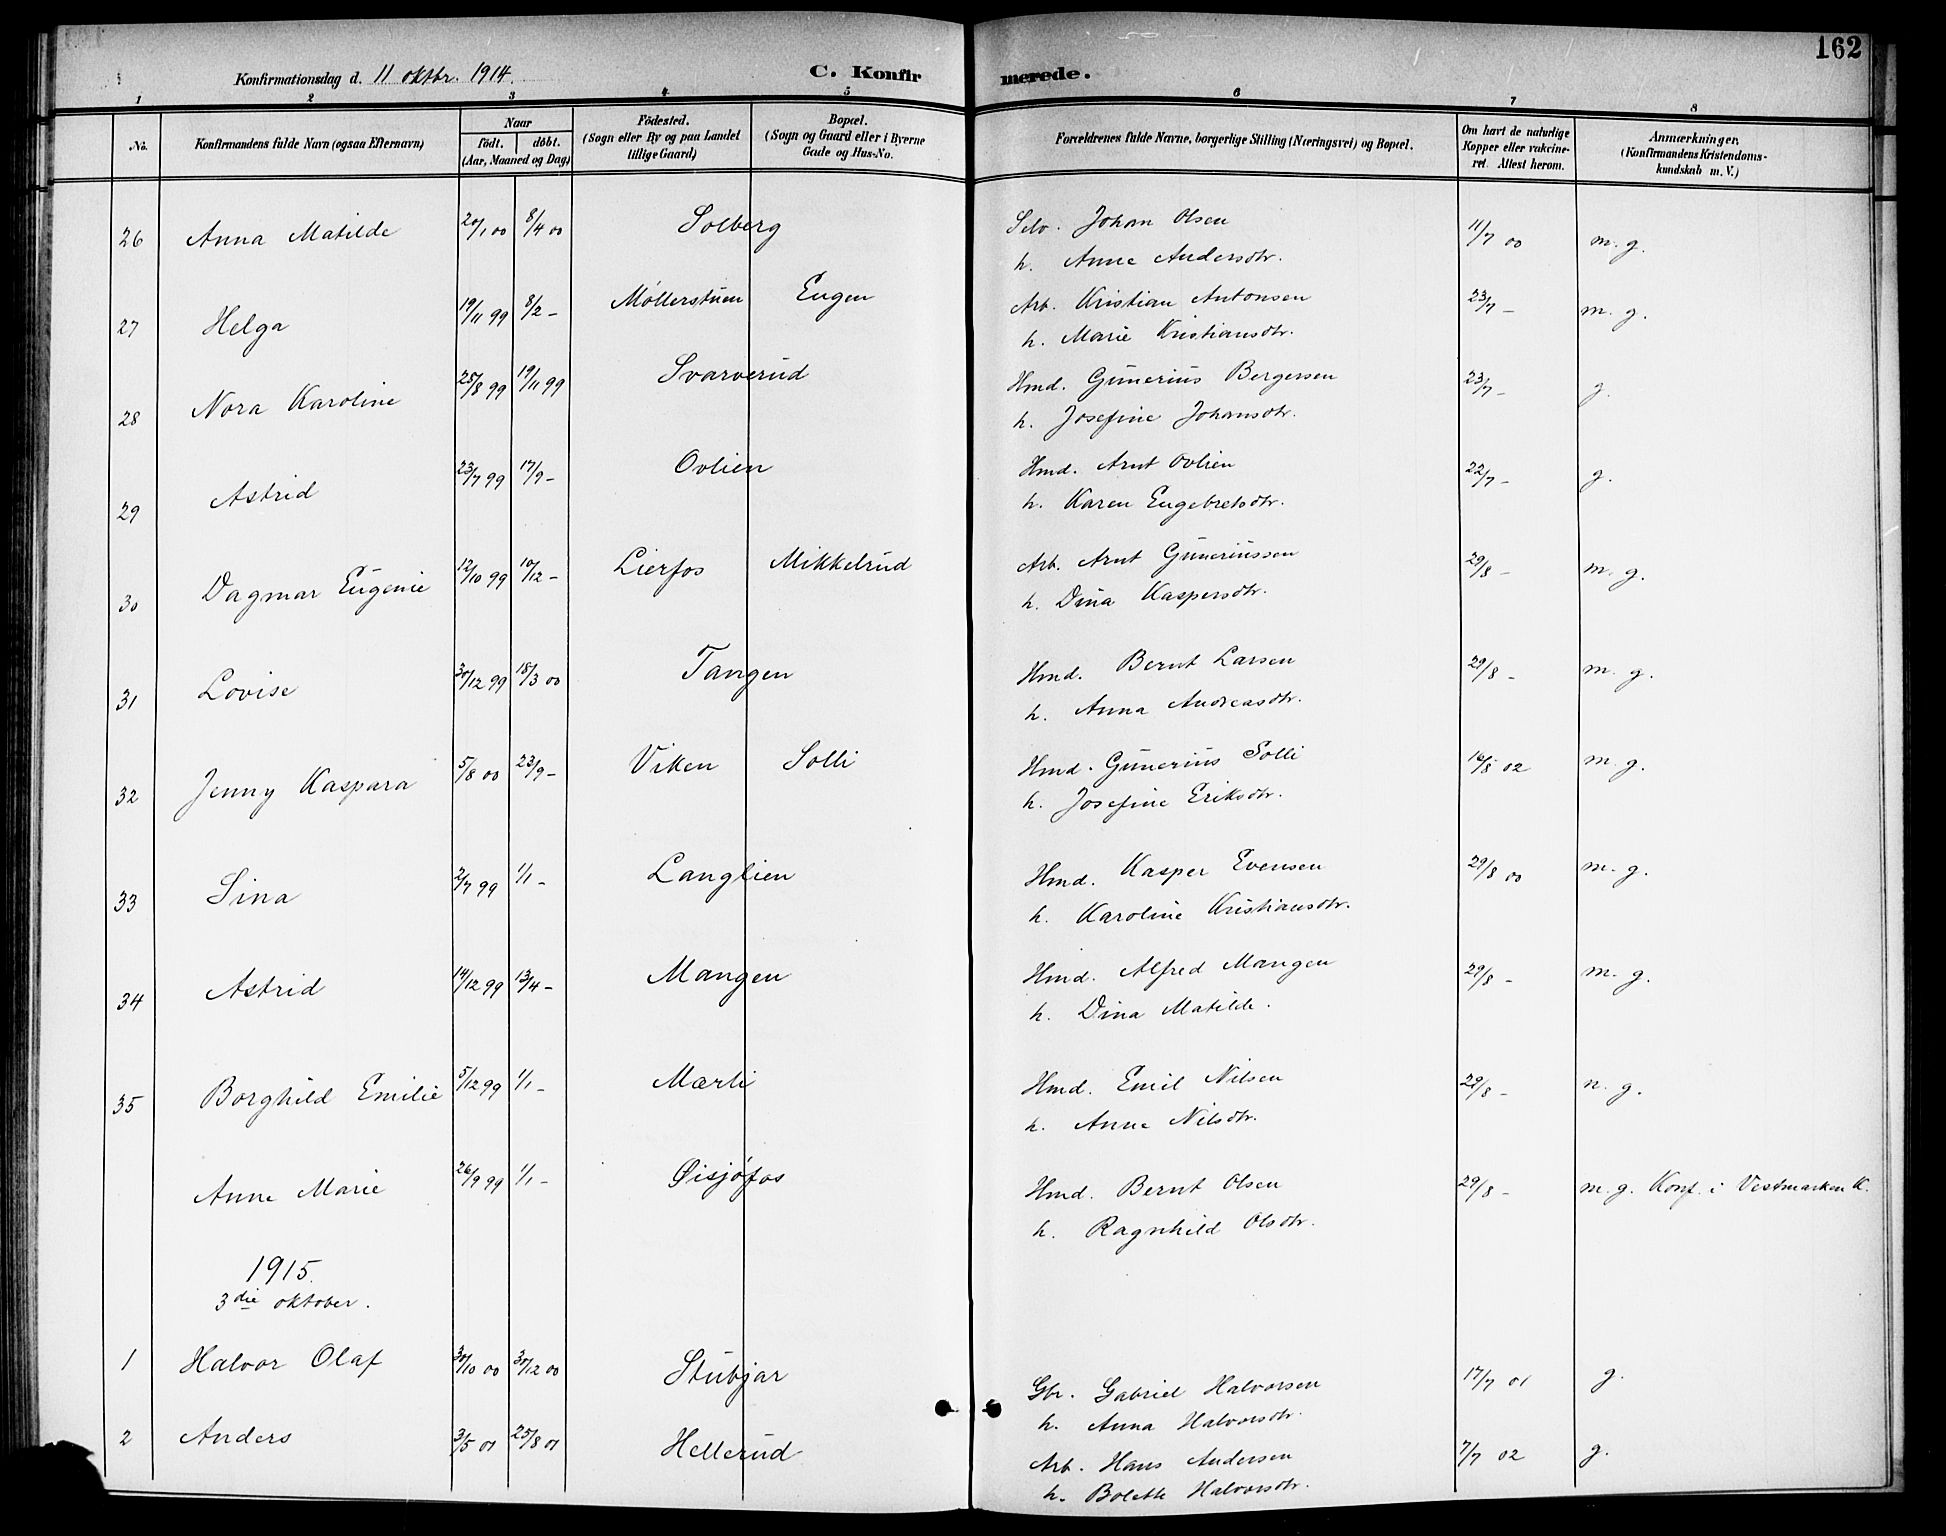 162
Konfirmationsdag d. 11 oktbr. 1914.
C. Konfirmerede.
1 2 3 4 5 6 7 8
No. Konfirmandens fulde Navn (ogsaa Efternavn) Naar født. døbt. (Aar, Maaned og Dag) Fødested. (Sogn eller By og paa Landet tillige Gaard) Bopæl. (Sogn og Gaard eller i Byerne Gade og Hus-No. Forældrenes fulde Navne, borgerlige Stilling (Næringsvei) og Bopæl. Om havt de naturlige Kopper eller vakcineret. Attest herom. Anmærkninger. (Konfirmandens Kristendomskundskab m. V.)
26 Anna Matilde 20/1 00 8/4 00 Solberg Selv. Johan Olsen 11/7 00 m. g.
h. Anne Andersdtr.
27 Helga 19/11 99 8/2 – Møllerstuen Eugen Arb. Kristian Antonsen 23/7 – m. g.
h. Marie Kristiansdtr.
28 Nora Karoline 25/8 99 19/11 99 Svarverud Hmd. Gunerius Bergersen 23/7 – g.
h. Josefine Johansdtr.
29 Astrid 23/7 99 17/9 – Ovlien Hmd. Arnt Ovlien 22/7 – g.
h. Karen Engebretsdtr.
30 Dagmar Eugenie 12/10 99 10/12 – Lierfos Mikkelrud Arb. Arnt Guneriussen 29/8 – m. g.
h. Dina Kaspersdtr.
31 Lovise 30/12 99 18/3 00 Tangen Hmd. Bernt Larsen 29/8 – m. g.
h. Anna Andreasdtr.
32 Jenny Kaspara 5/8 00 23/9 – Viken Solli Hmd. Gunerius Solli 16/8 02 m. g.
h. Josefine Eriksdtr.
33 Sina 2/7 99 1/1 – Langlien Hmd. Kasper Evensen 29/8 00 m. g.
h. Karoline Kristiansdtr.
34 Astrid 14/12 99 13/4 – Mangen Hmd. Alfred Mangen 29/8 – m. g.
h. Dina Matilde.
35 Borghild Emilie 5/12 99 1/1 – Mærli Hmd. Emil Nilsen 29/8 – m. g.
h. Anne Nilsdtr.
Anne Marie 26/9 99 1/1 – Øisjøfos Hmd. Bernt Olsen 29/8 – m. g. Konf. i Vestmarken K.
h. Ragnhild Olsdtr.
1915.
3die oktober.
1 Halvor Olaf 30/10 00 30/12 00 Stubjar Gbr. Gabriel Halvorsen 17/7 01 g.
h. Anna Halvorsdtr.
2 Anders 3/5 01 25/8 01 Hellerud Arb. Hans Andersen 7/7 02 g.
h. Bolette Halvorsdtr.